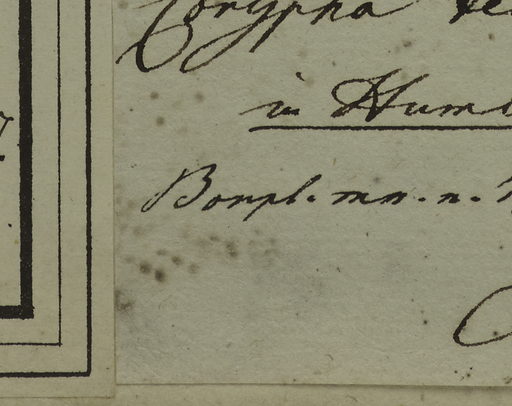 Corypha
in Humb
Bonpl. mn. n.